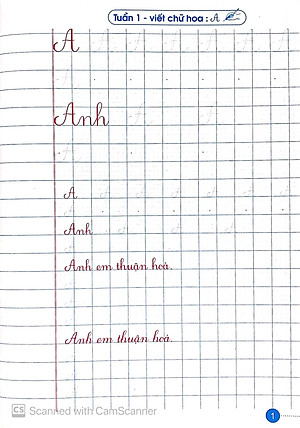 Tuần 1 - viết chữ hoa : A
A
Anh
A
Anh
Anh em thuận hoà.
Anh em thuận hoà.
1
CS Scanned with CamScanner